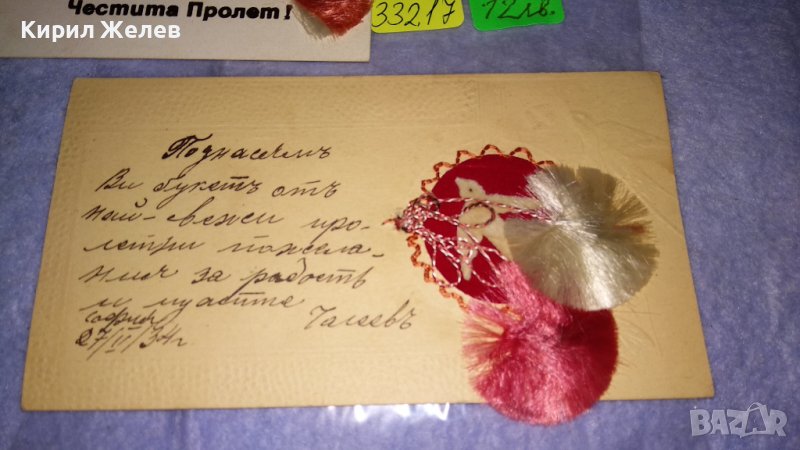 Честита Пролет!
Кирил Желев
33217
12лв.
Поднасямъ
Ви букетъ отъ
най-свежи про-
летни пожела-
ния за радость
и щастие
София
27/II/34г
BAZAR